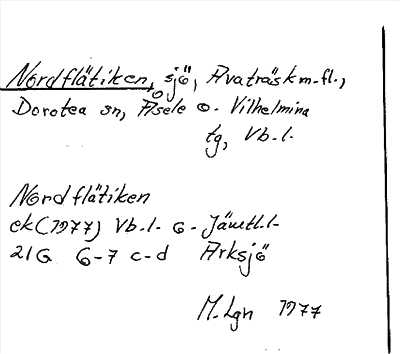 Nordflätiken, sjö, Avaträsk m-fl.,
Dorotea sn, Åsele o. Vilhelmina
tg, Vb.l.
Nordflätiken
ek(1977) Vb.l. o. Jämtl.l.
21G 6-7 c-d Arksjö
M.Lgn 1977